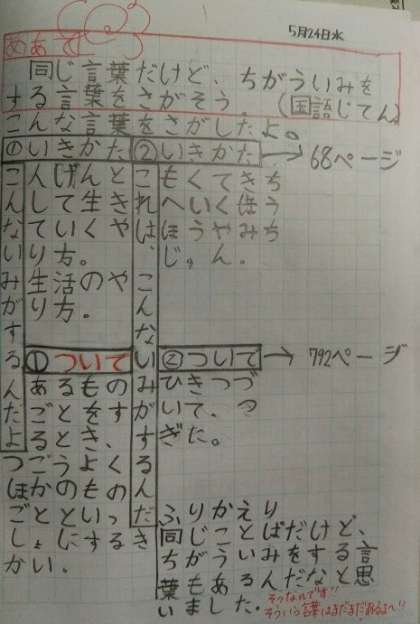 5月24日水
めあて
同じ言葉だけど、ちがういみを
する言葉をさがそう(国語じてん)
こんな言葉をさがしたよ。
①いきかた
人げんと
して生き
ていくや
り方。
生活のや
り方。
こんないみがするんだよ
②いきかた→68ページ
もくてきち
へいくほう
ほうやみち
じゅん。
これは、こんないみがするんだ
①ついで
あるもの
ごとをす
るとき、
つごうよく
ほかのもの
ごとといっ
しょにするき
かい。
②ついで→792ページ
ひきつづ
いて、つ
ぎた。
ふりかえり
同じことばだけど、
ちがういみをする言
葉もあるんだなと思
いました。
そうなんです!!
そういう言葉はまだまだあるよ〜!!